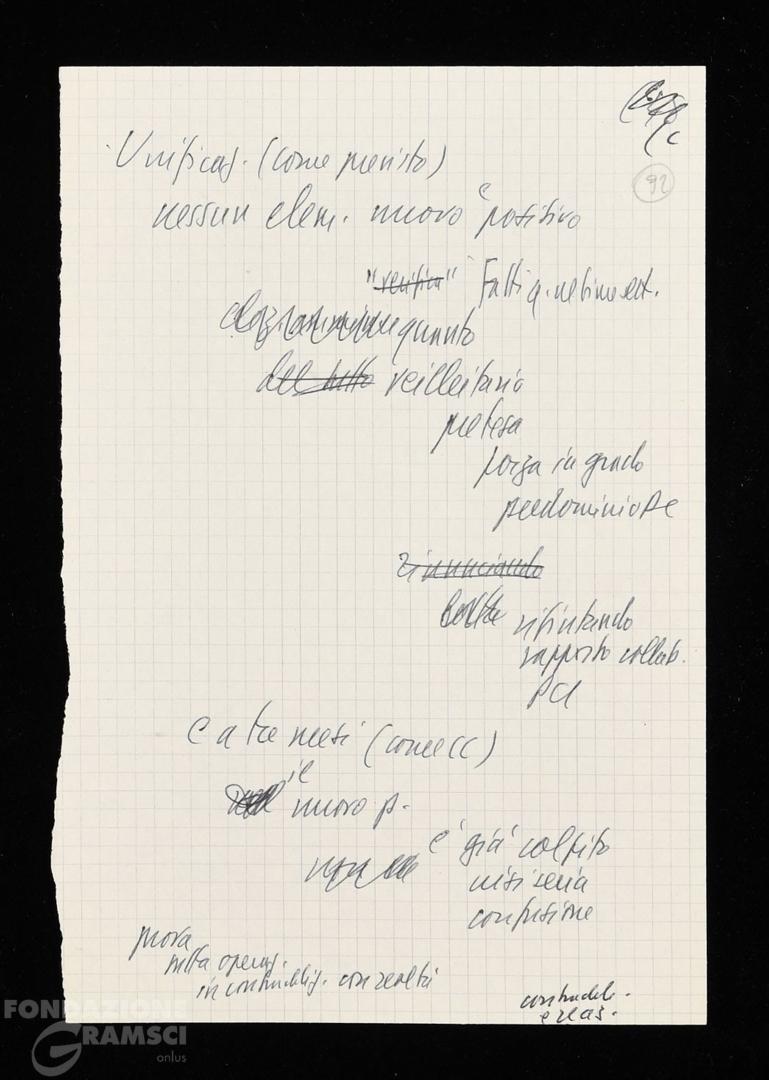 92
Unificaz. (come previsto)
nessun elem. nuovo e positivo
"verifica" Fatti q. ultime sett.
quanto
del tutto velleitario
pretesa
forza in grado
predominio DC
rinunciando
rifiutando
rapporto collab.
PCI
E a tre mesi (come CC)
il
nuovo p.
è già colpito
crisi seria
confusione
prova
tutta operaz.
in contraddiz. con realtà
contraddiz.
e reaz.
FONDAZIONE
GRAMSCI
onlus